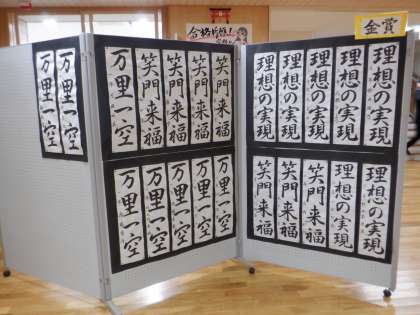 合格祈願!
金賞
万里一空
万里一空
万里一空
笑門来福
笑門来福
笑門来福
笑門来福
万里一空
万里一空
万里一空
万里一空
万里一空
理想の実現
理想の実現
理想の実現
理想の実現
理想の実現
笑門来福
笑門来福
笑門来福
理想の実現
理想の実現